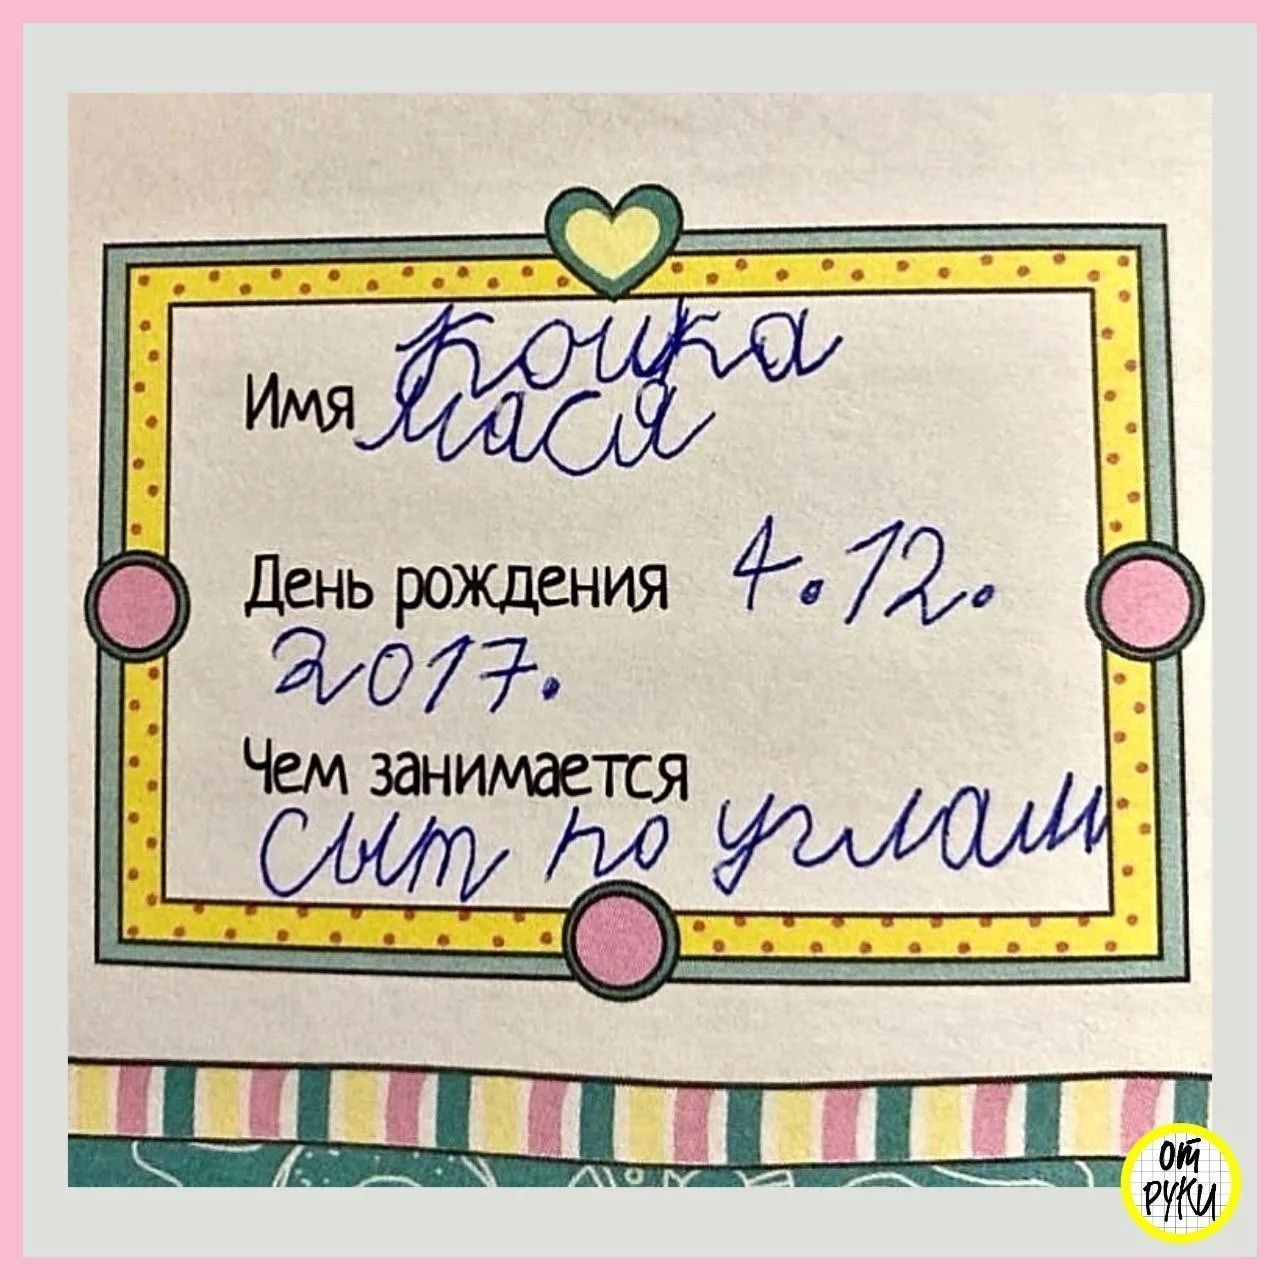 кошка
Имя мася
День рождения 4.12.
2017.
Чем занимается
сыт по углам
от
руки